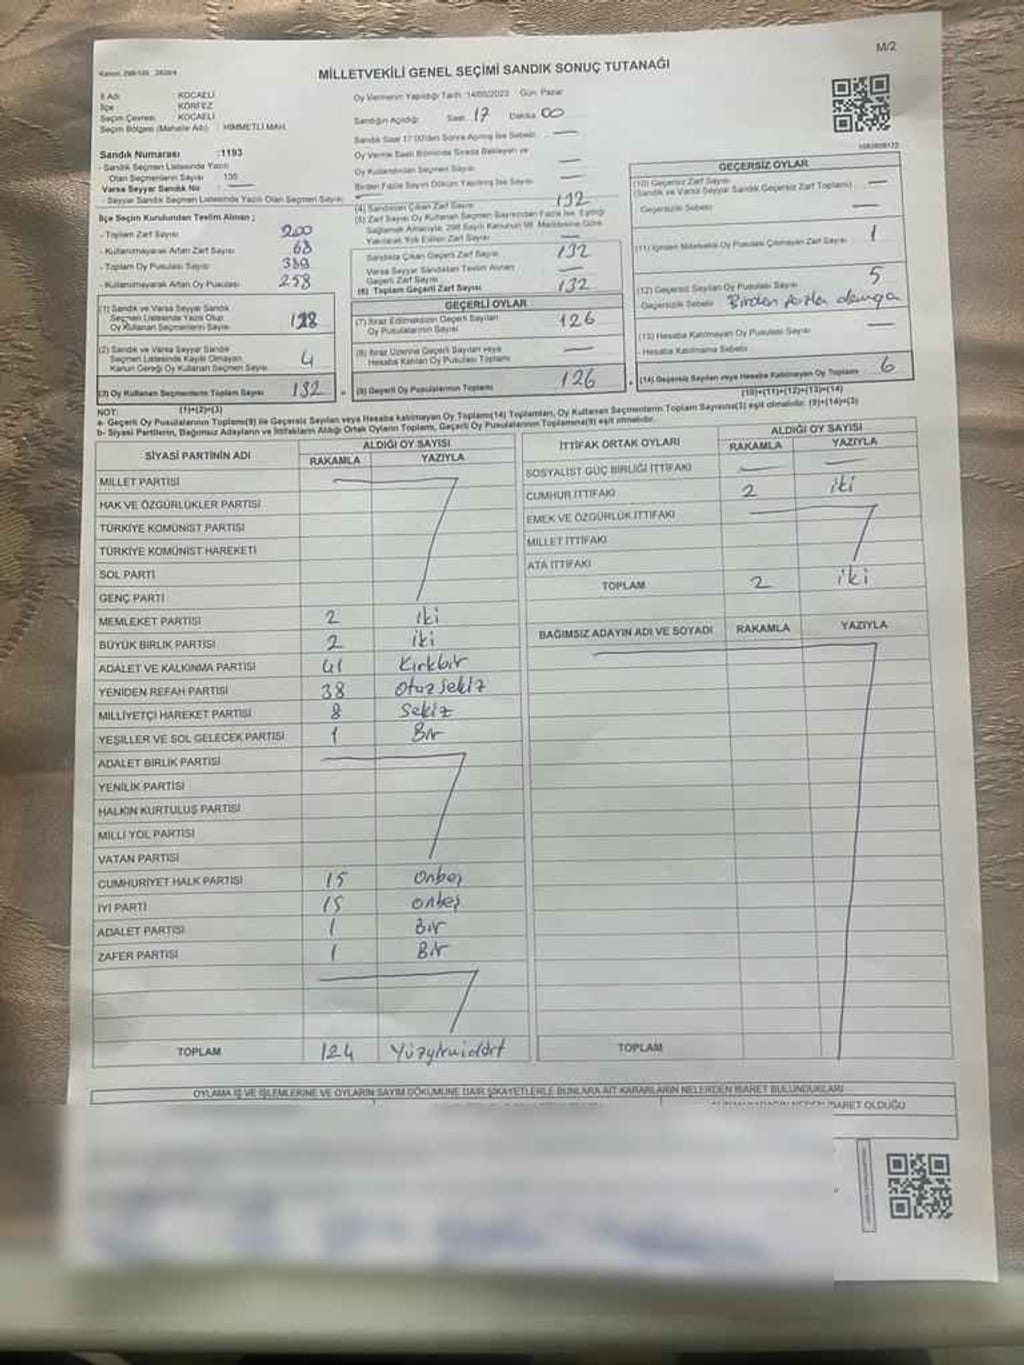 M/2
MİLLETVEKİLİ GENEL SEÇİMİ SANDIK SONUÇ TUTANAĞI
İl Adı : KOCAELİ
İlçe : KÖRFEZ
Seçim Çevresi : KOCAELİ
Seçim Bölgesi (Mahalle Adı) : HİMMETLİ MAH.
Sandık Numarası :1193
- Sandık Seçmen Listesinde Yazılı
Olan Seçmenlerin Sayısı 135
Varsa Seyyar Sandık No : —
- Seyyar Sandık Seçmen Listesinde Yazılı Olan Seçmen Sayısı
İlçe Seçim Kurulundan Teslim Alınan ;
- Toplam Zarf Sayısı 200
- Kullanılmayarak Artan Zarf Sayısı 68
- Toplam Oy Pusulası Sayısı 389
- Kullanılmayarak Artan Oy Pusulası 258
(1) Sandık ve Varsa Seyyar Sandık
Seçmen Listesinde Yazılı Olup
Oy Kullanan Seçmenlerin Sayısı 128
(2) Sandık ve Varsa Seyyar Sandık
Seçmen Listesinde Kayıtlı Olmayan
Kanun Gereği Oy Kullanan Seçmen Sayısı 4
(3) Oy Kullanan Seçmenlerin Toplam Sayısı 132
(1)+(2)=(3)
Oy Vermenin Yapıldığı Tarih :14/05/2023 Gün: Pazar
Sandığın Açıldığı Saat 17 Dakika 00
Sandık Saat 17.00'den Sonra Açılmış İse Sebebi : —
Oy Verme Saati Bitiminde Sırada Bekleyen ve
Oy Kullandırılan Seçmen Sayısı —
Birden Fazla Sayım Döküm Yapılmış İse Sayısı —
(4) Sandıktan Çıkan Zarf Sayısı 132
(5) Zarf Sayısı Oy Kullanan Seçmen Sayısından Fazla İse, Eşitliği
Sağlamak Amacıyla; 298 Sayılı Kanunun 98. Maddesine Göre
Yakılarak Yok Edilen Zarf Sayısı —
Sandıkta Çıkan Geçerli Zarf Sayısı 132
Varsa Seyyar Sandıktan Teslim Alınan
Geçerli Zarf Sayısı —
(6) Toplam Geçerli Zarf Sayısı 132
GEÇERLİ OYLAR
(7) İtiraz Edilmeksizin Geçerli Sayılan
Oy Pusulalarının Sayısı 126
(8) İtiraz Üzerine Geçerli Sayılan veya
Hesaba Katılan Oy Pusulası Toplamı —
(9) Geçerli Oy Pusulalarının Toplamı 126
GEÇERSİZ OYLAR
(10) Geçersiz Zarf Sayısı —
(Sandık ve Varsa Seyyar Sandık Geçersiz Zarf Toplamı)
Geçersizlik Sebebi —
(11) İçinden Milletvekili Oy Pusulası Çıkmayan Zarf Sayısı 1
(12) Geçersiz Sayılan Oy Pusulası Sayısı 5
Geçersizlik Sebebi Birden fazla damga
(13) Hesaba Katılmayan Oy Pusulası Sayısı —
- Hesaba Katılmama Sebebi
(14) Geçersiz Sayılan veya Hesaba Katılmayan Oy Toplamı 6
(10)+(11)+(12)+(13)=(14)
NOT:
a- Geçerli Oy Pusulalarının Toplamı(9) ile Geçersiz Sayılan veya Hesaba katılmayan Oy Toplamı(14) Toplamları, Oy Kullanan Seçmenlerin Toplam Sayısına(3) eşit olmalıdır. (9)+(14)=(3)
b- Siyasi Partilerin, Bağımsız Adayların ve İttifakların Aldığı Ortak Oyların Toplamı, Geçerli Oy Pusulalarının Toplamına(9) eşit olmalıdır.
SİYASİ PARTİNİN ADI ALDIĞI OY SAYISI
RAKAMLA YAZIYLA
MİLLET PARTİSİ
HAK VE ÖZGÜRLÜKLER PARTİSİ
TÜRKİYE KOMÜNİST PARTİSİ
TÜRKİYE KOMÜNİST HAREKETİ
SOL PARTİ
GENÇ PARTİ
MEMLEKET PARTİSİ 2 iki
BÜYÜK BİRLİK PARTİSİ 2 iki
ADALET VE KALKINMA PARTİSİ 41 Kırkbir
YENİDEN REFAH PARTİSİ 38 Otuzsekiz
MİLLİYETÇİ HAREKET PARTİSİ 8 Sekiz
YEŞİLLER VE SOL GELECEK PARTİSİ 1 Bir
ADALET BİRLİK PARTİSİ
YENİLİK PARTİSİ
HALKIN KURTULUŞ PARTİSİ
MİLLİ YOL PARTİSİ
VATAN PARTİSİ
CUMHURİYET HALK PARTİSİ 15 Onbeş
İYİ PARTİ 15 onbeş
ADALET PARTİSİ 1 Bir
ZAFER PARTİSİ 1 Bir
TOPLAM 124 Yüzyirmidört
İTTİFAK ORTAK OYLARI ALDIĞI OY SAYISI
RAKAMLA YAZIYLA
SOSYALİST GÜÇ BİRLİĞİ İTTİFAKI — —
CUMHUR İTTİFAKI 2 iki
EMEK VE ÖZGÜRLÜK İTTİFAKI
MİLLET İTTİFAKI
ATA İTTİFAKI
TOPLAM 2 iki
BAĞIMSIZ ADAYIN ADI VE SOYADI RAKAMLA YAZIYLA
TOPLAM
OYLAMA İŞ VE İŞLEMLERİNE VE OYLARIN SAYIM DÖKÜMÜNE DAİR ŞİKAYETLERLE BUNLARA AİT KARARLARIN NELERDEN İBARET BULUNDUKLARI
İBARET OLDUĞU